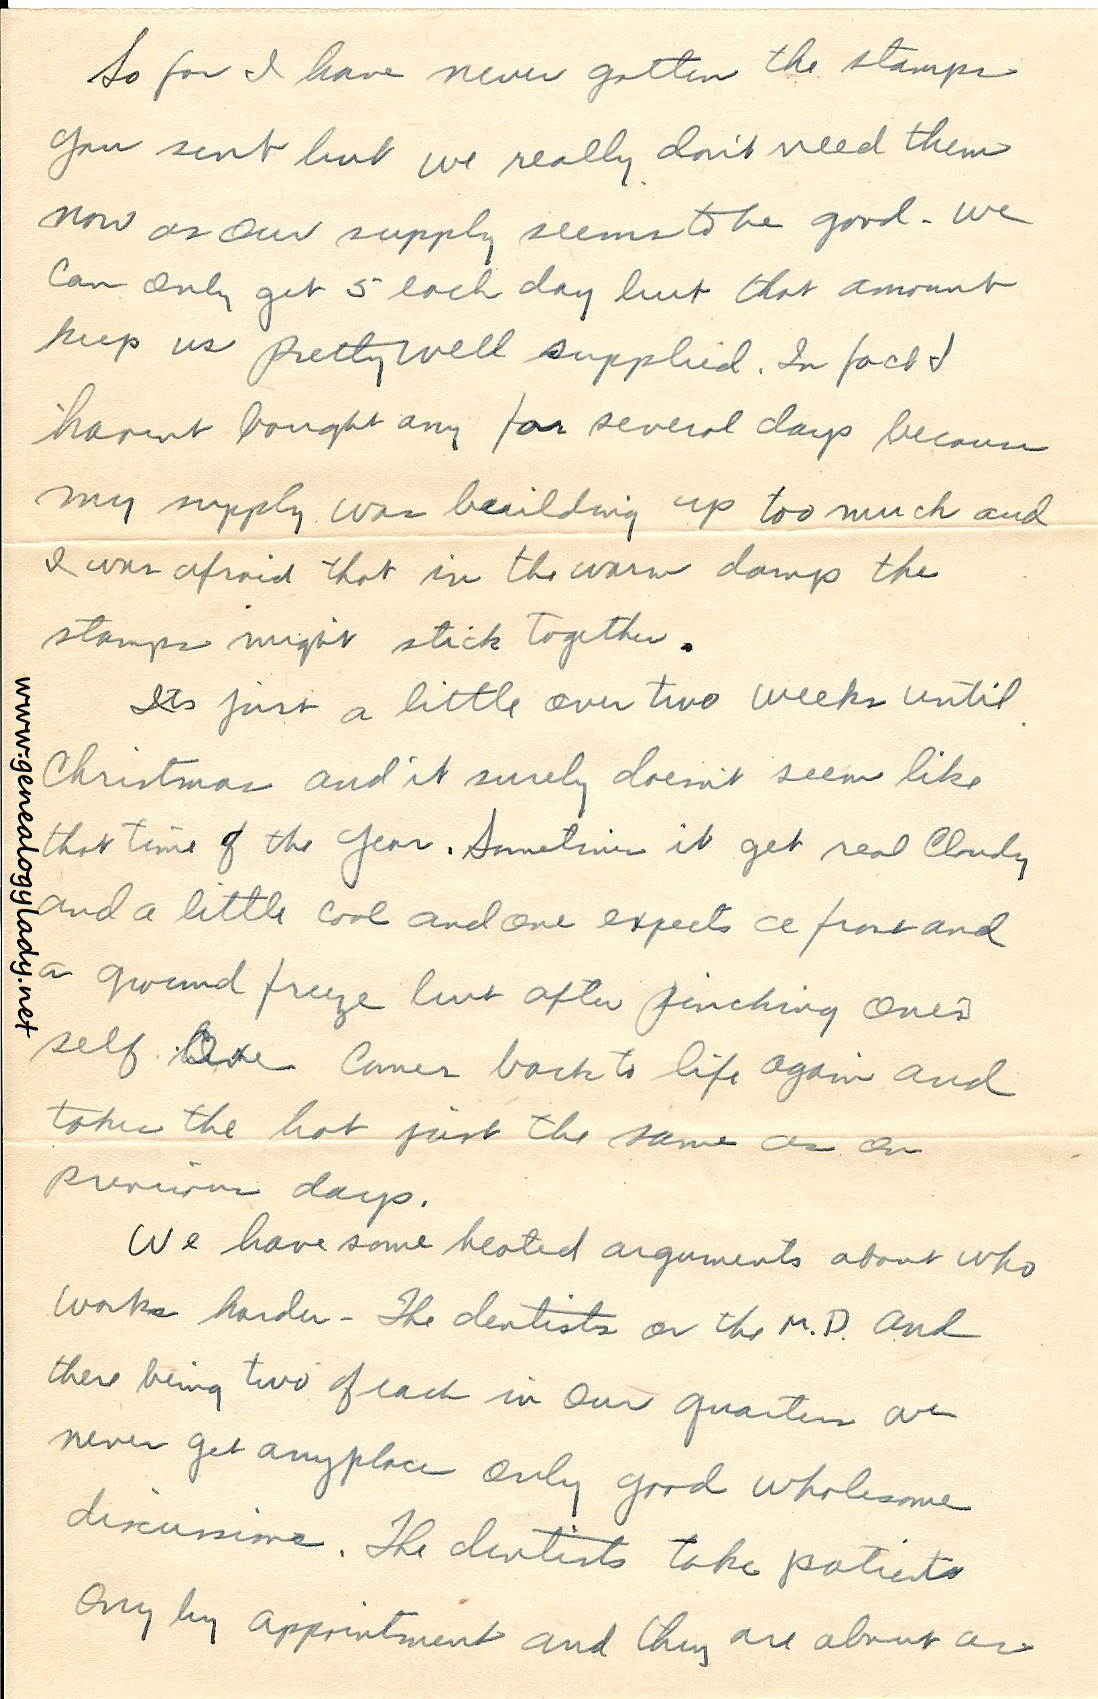 So far I have never gotten the stamps
you sent but we really don't need them
now as our supply seems to be good - we
can only get 5 each day but that amount
keep us pretty well supplied. In fact I
havent bought any for several days because
my supply was beuilding up too much and
I was afraid that in the warm damp the
stamps might stick together.
Its just a little over two weeks until
Christmas and it surely doesn't seem like
that time of the year. Sometimes it get real cloudy
and a little cool and one expects a frost and
a ground freeze but after pinching ones
self one comes back to life again and
takes the hot just the same as on
previous days.
We have some heated arguments about who
works harder - The dentists or the M.D. and
there being two of each in our quarters we
never get anyplace only good wholesome
discussions. The dentists take patients
ony by appointment and they are about as
www.genealogylady.net